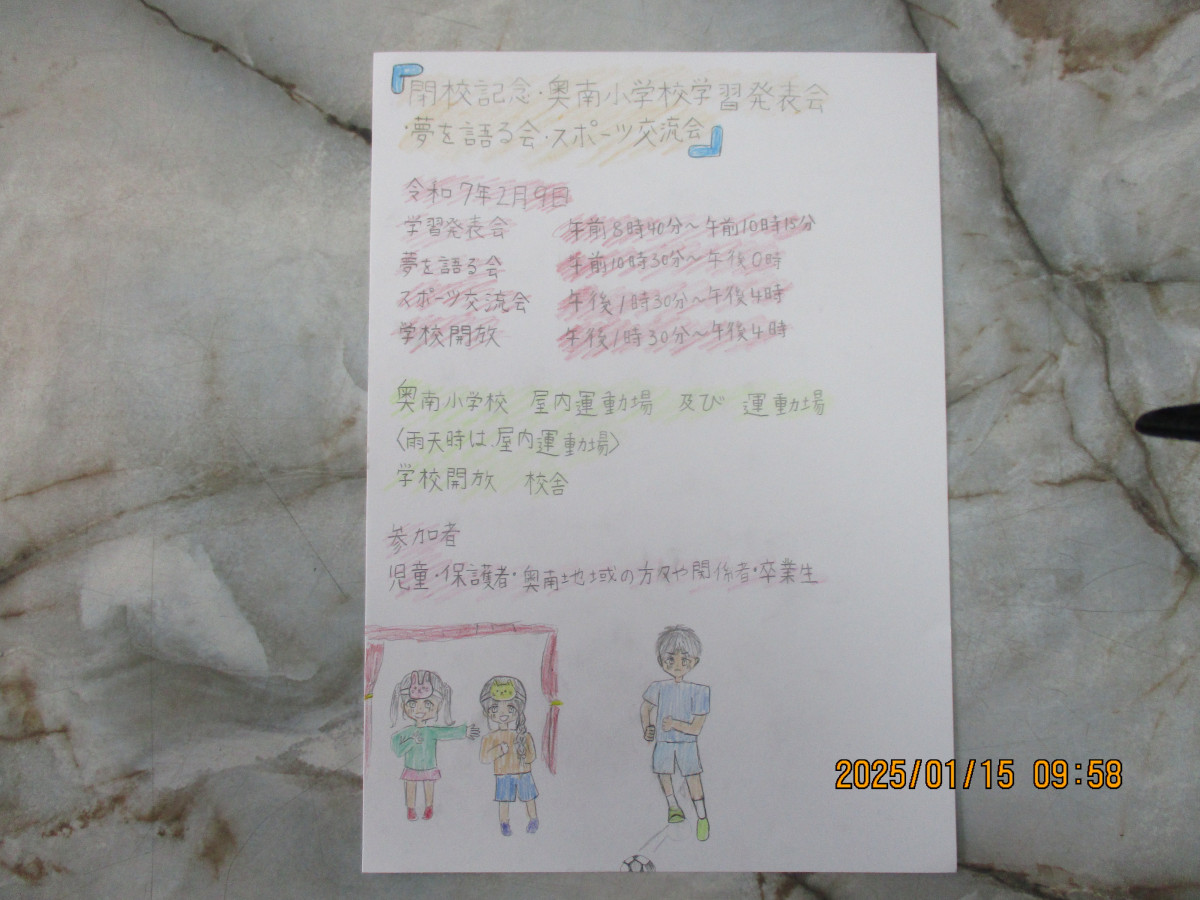 『閉校記念・奥南小学校学習発表会
・夢を語る会・スポーツ交流会』
令和7年2月9日
学習発表会 午前8時40分～午前10時15分
夢を語る会 午前10時30分～午後0時
スポーツ交流会 午後1時30分～午後4時
学校開放 午後1時30分～午後4時
奥南小学校 屋内運動場 及び 運動場
〈雨天時は、屋内運動場〉
学校開放 校舎
参加者
児童・保護者・奥南地域の方々や関係者・卒業生
2025/01/15 09:58